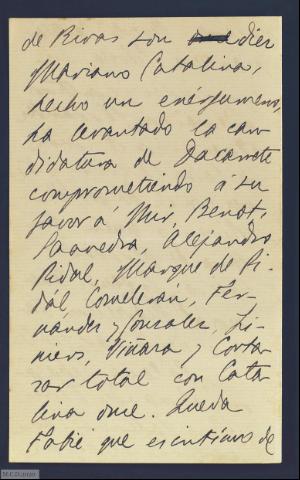 de Rivas son diez
Mariano Catalina,
hecho un energumeno,
ha levantado la can-
didatura de Dacarrete
comprometiendo á su
favor á Mir, Benot,
Saavedra, Alejandro
Pidal, Marqués de Pi-
dal, Comelerán, Fer-
nández y Gonzalez, Li-
niers, Viñaza y Corta-
zar total con Cata-
lina once. Queda
Fabié que escribimos de